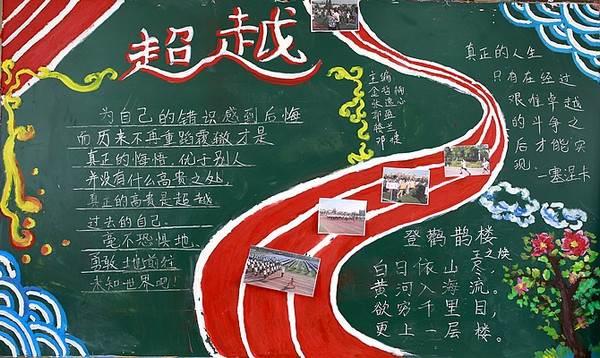 超越
为自己的错识感到后悔
而历来不再重蹈覆辙才是
真正的悔悟.优于别人
并没有什么高贵之处,
真正的高贵是超越
过去的自己.
毫不恐惧地、
勇敢地前往
未知世界吧!
主编
真正的人生
只有在经过
艰难卓越
的斗争之
后才能实
现.
—塞涅卡
登鹳鹊楼
王之焕
白日依山尽,
黄河入海流。
欲穷千里目,
更上一层楼。